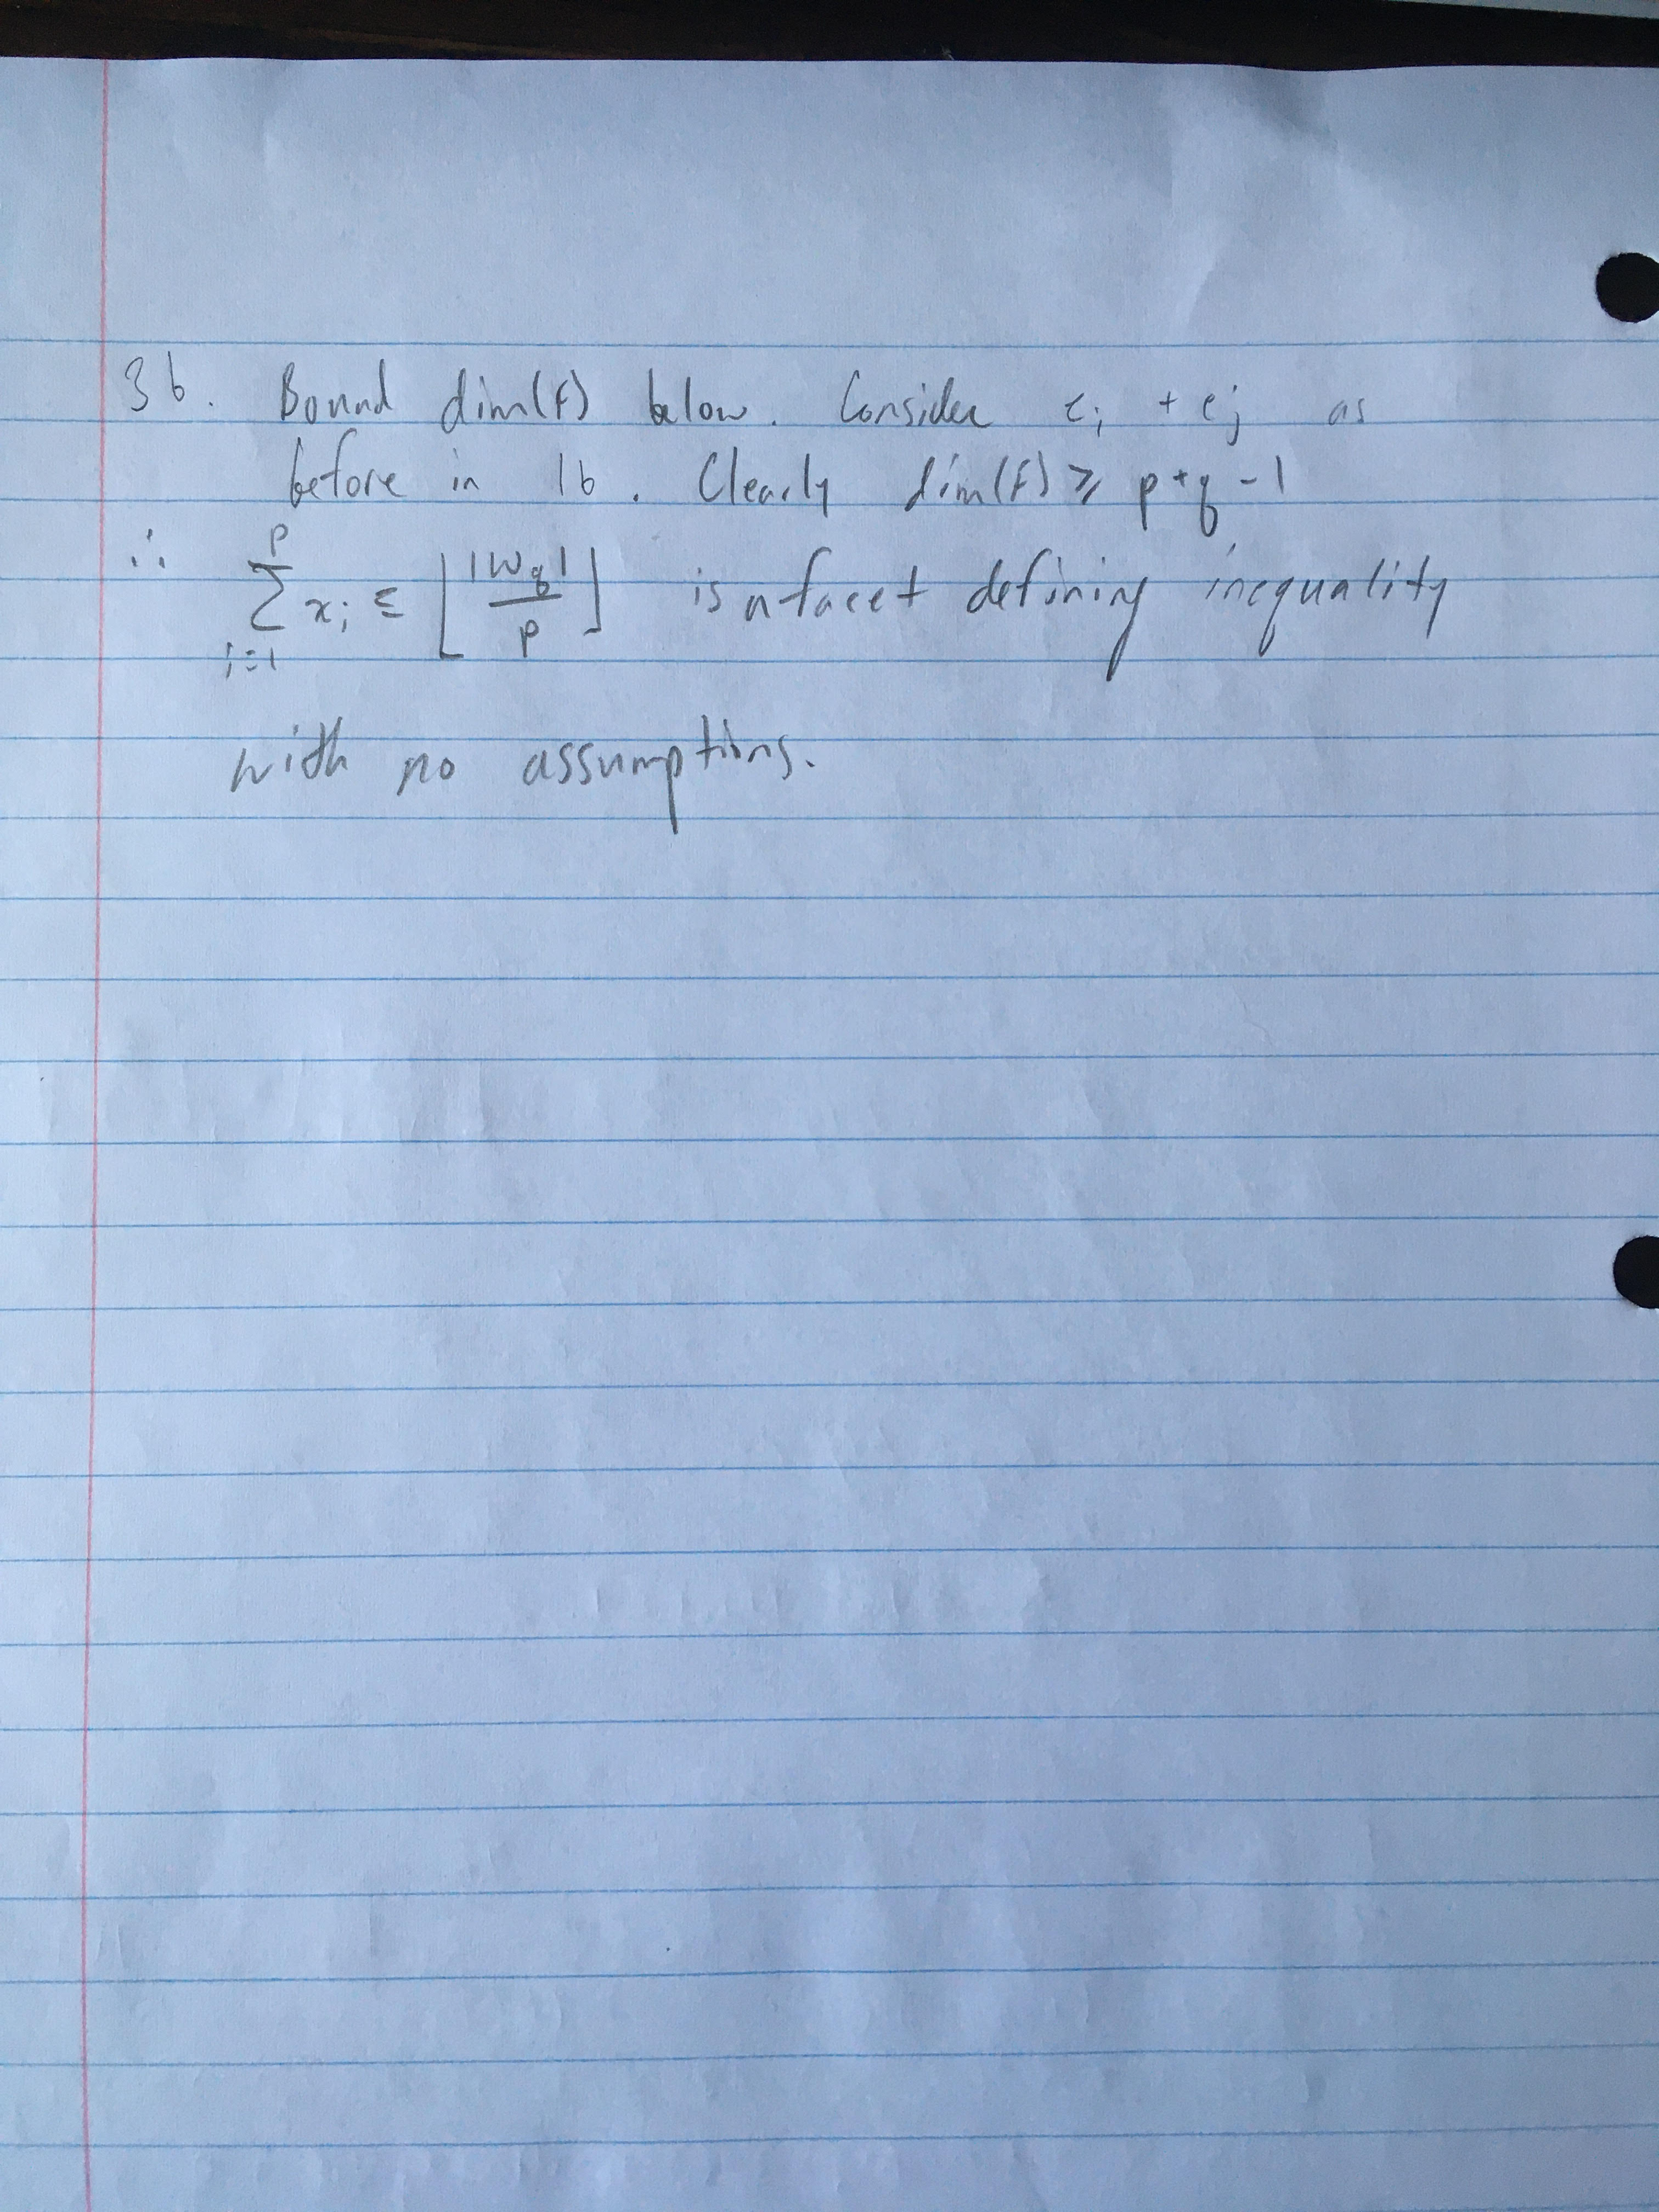 3b. Bound dim(F) below. Consider e_i + e_j as
before in 1b. Clearly dim(F) ≥ p+q-1
∴ \sum_{i=1}^{p} x_i ≤ ⌊|W_q|/p⌋ is a facet defining inequality
with no assumptions.